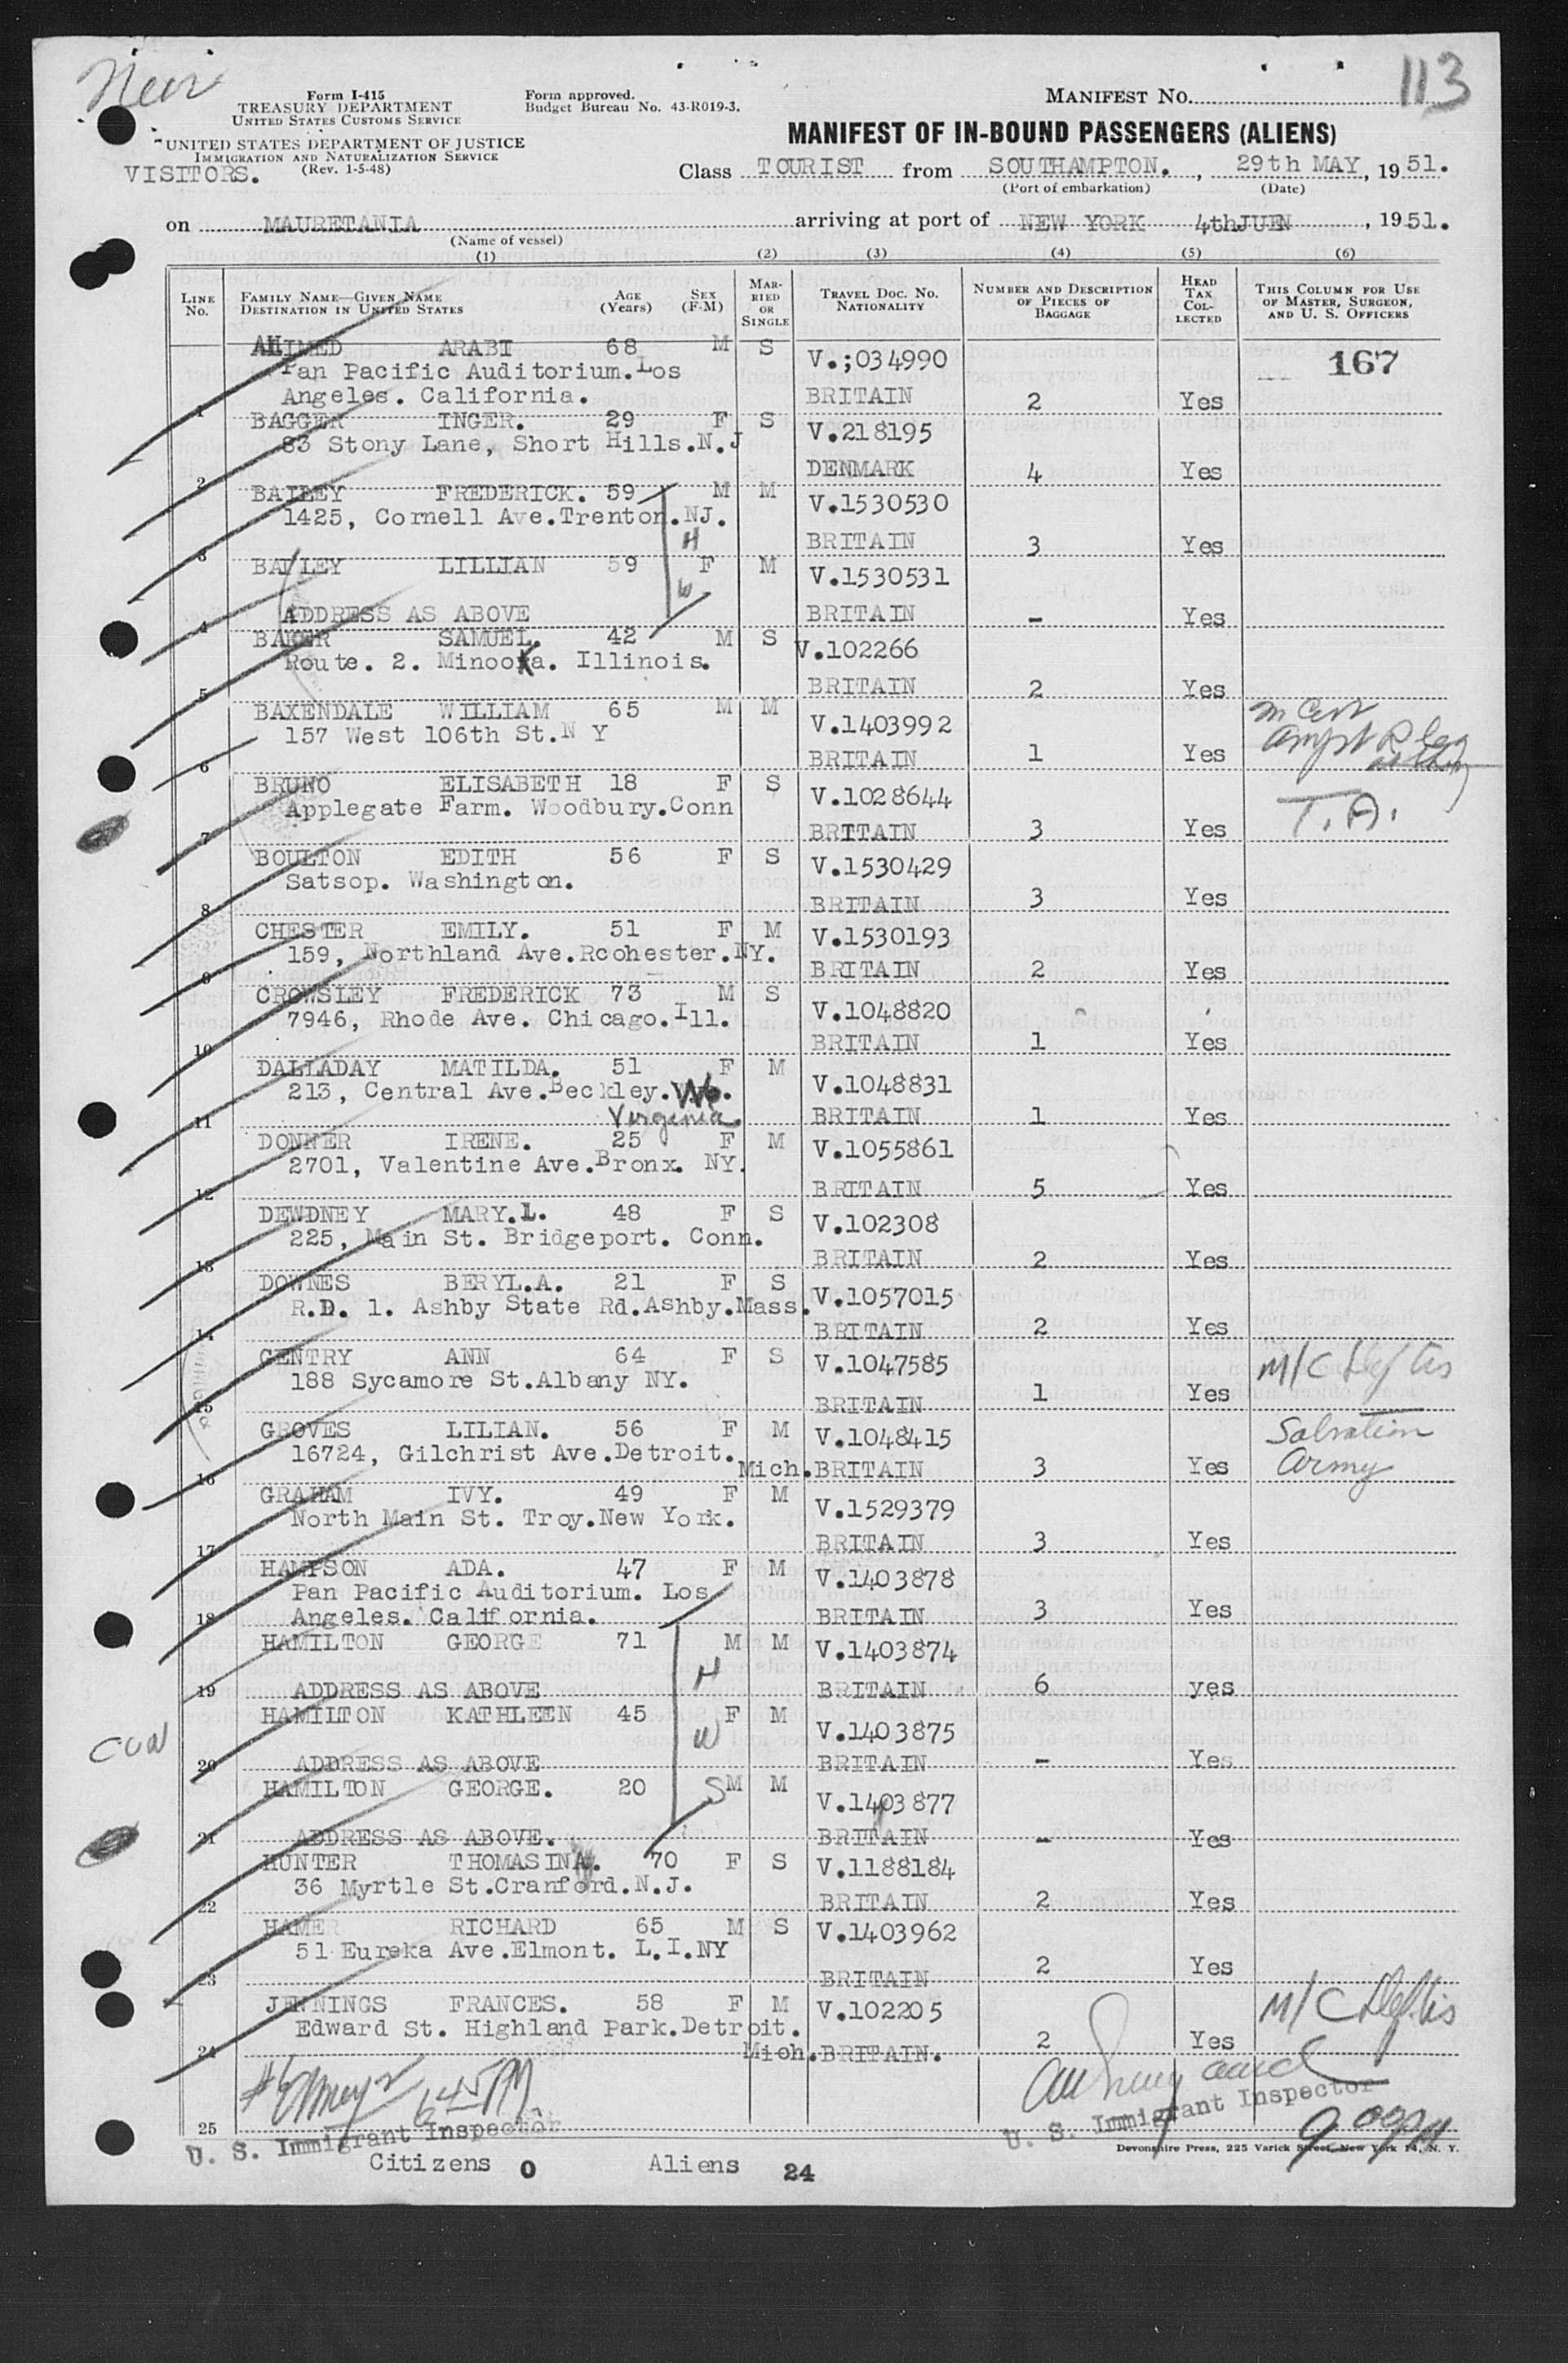 113
Form I-415
TREASURY DEPARTMENT
UNITED STATES CUSTOMS SERVICE
UNITED STATES DEPARTMENT OF JUSTICE
IMMIGRATION AND NATURALIZATION SERVICE
(Rev. 1-5-48)
VISITORS.
Form approved.
Budget Bureau No. 43-R019-3.
MANIFEST NO.
MANIFEST OF IN-BOUND PASSENGERS (ALIENS)
Class TOURIST from SOUTHAMPTON. , 29th MAY , 1951.
(Port of embarkation) (Date)
on MAURETANIA arriving at port of NEW YORK 4thJUEN , 1951.
(Name of vessel)
(1) (2) (3) (4) (5) (6)
LINE NO. FAMILY NAME—GIVEN NAME DESTINATION IN UNITED STATES AGE (Years) SEX (F-M) MARRIED OR SINGLE TRAVEL DOC. NO. NATIONALITY NUMBER AND DESCRIPTION OF PIECES OF BAGGAGE HEAD TAX COLLECTED THIS COLUMN FOR USE OF MASTER, SURGEON, AND U. S. OFFICERS
AHIMED ARABI 68 M S V.;034990 167
Pan Pacific Auditorium.Los
1 Angeles. California. BRITAIN 2 Yes
BAGGER INGER. 29 F S V.218195
83 Stony Lane, Short Hills.N.J
2 DENMARK 4 Yes
BAILEY FREDERICK. 59 M M V.1530530
1425, Cornell Ave.Trenton.NJ.
3 BRITAIN 3 Yes
H
BAILEY LILLIAN 59 F M V.1530531
W
4 ADDRESS AS ABOVE BRITAIN - Yes
BAKER SAMUEL. 42 M S V.102266
Route. 2. Minooka. Illinois.
5 BRITAIN 2 Yes
BAXENDALE WILLIAM 65 M M V.1403992
157 West 106th St.N Y
6 BRITAIN 1 Yes
BRUNO ELISABETH 18 F S V.1028644
Applegate Farm. Woodbury.Conn T.A.
7 BRTTAIN 3 Yes
BOULTON EDITH 56 F S V.1530429
Satsop. Washington.
8 BRITAIN 3 Yes
CHESTER EMILY. 51 F M V.1530193
159, Northland Ave.Rcohester.NY.
9 BRITAIN 2 Yes
CROWSLEY FREDERICK 73 M S V.1048820
7946, Rhode Ave. Chicago.Ill.
10 BRITAIN 1 Yes
DALLADAY MATILDA. 51 F M V.1048831
213, Central Ave.Beckley.
Virginia.
11 BRITAIN 1 Yes
DONNER IRENE. 25 F M V.1055861
2701, Valentine Ave.Bronx. NY.
12 BRITAIN 5 Yes
DEWDNEY MARY.L. 48 F S V.102308
225, Main St. Bridgeport. Conn.
13 BRITAIN 2 Yes
DOWNES BERYL.A. 21 F S V.1057015
R.D. 1. Ashby State Rd.Ashby.Mass.
14 BRITAIN 2 Yes
GENTRY ANN 64 F S V.1047585 M/C
188 Sycamore St.Albany NY.
15 BRITAIN 1 Yes
GROVES LILIAN. 56 F M V.1048415 Salvation
16724, Gilchrist Ave.Detroit.
16 Mich. BRITAIN 3 Yes Army
GRAHAM IVY. 49 F M V.1529379
North Main St. Troy.New York.
17 BRITAIN 3 Yes
HAMPSON ADA. 47 F M V.1403878
Pan Pacific Auditorium. Los
18 Angeles. California. BRITAIN 3 Yes
HAMILTON GEORGE 71 M M V.1403874
H
19 ADDRESS AS ABOVE BRITAIN 6 yes
HAMILTON KATHLEEN 45 F M V.1403875
W
20 ADDRESS AS ABOVE BRITAIN - Yes
HAMILTON GEORGE. 20 S M M V.1403877
21 ADDRESS AS ABOVE. BRITAIN - Yes
HUNTER THOMASINA. 70 F S V.1188184
36 Myrtle St.Cranford.N.J.
22 BRITAIN 2 Yes
HAMER RICHARD 65 M S V.1403962
51 Eureka Ave.Elmont. L.I.NY
23 BRITAIN 2 Yes
JENNINGS FRANCES. 58 F M V.102205 M/C
Edward St. Highland Park.Detroit.
24 Mich. BRITAIN. 2 Yes
25
U. S. Immigrant Inspector
U. S. Immigrant Inspector
900PM
Devonshire Press, 225 Varick Street, New York 14, N. Y.
Citizens 0 Aliens 24